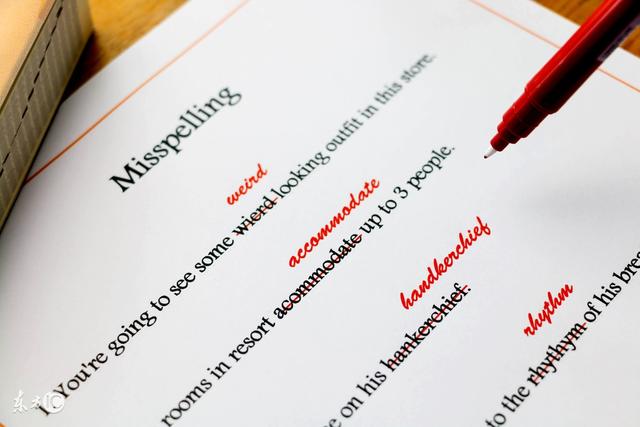 Misspelling
weird
1. You're going to see some wierd looking outfit in this store.
accommodate
rooms in resort acommodate up to 3 people.
handkerchief
on his hankerchief.
rhythm
to the rhythym of his
东方IC